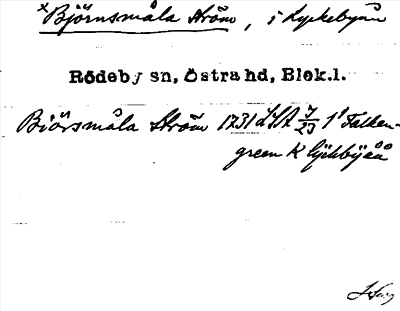 × Björnsmåla Ström, i Lyckebyån
Rödeby sn, Östra hd, Blek.l.
Biörsmåla Ström 1731 LSA 7/23 1¹ Falken-
green K lÿckbÿåå